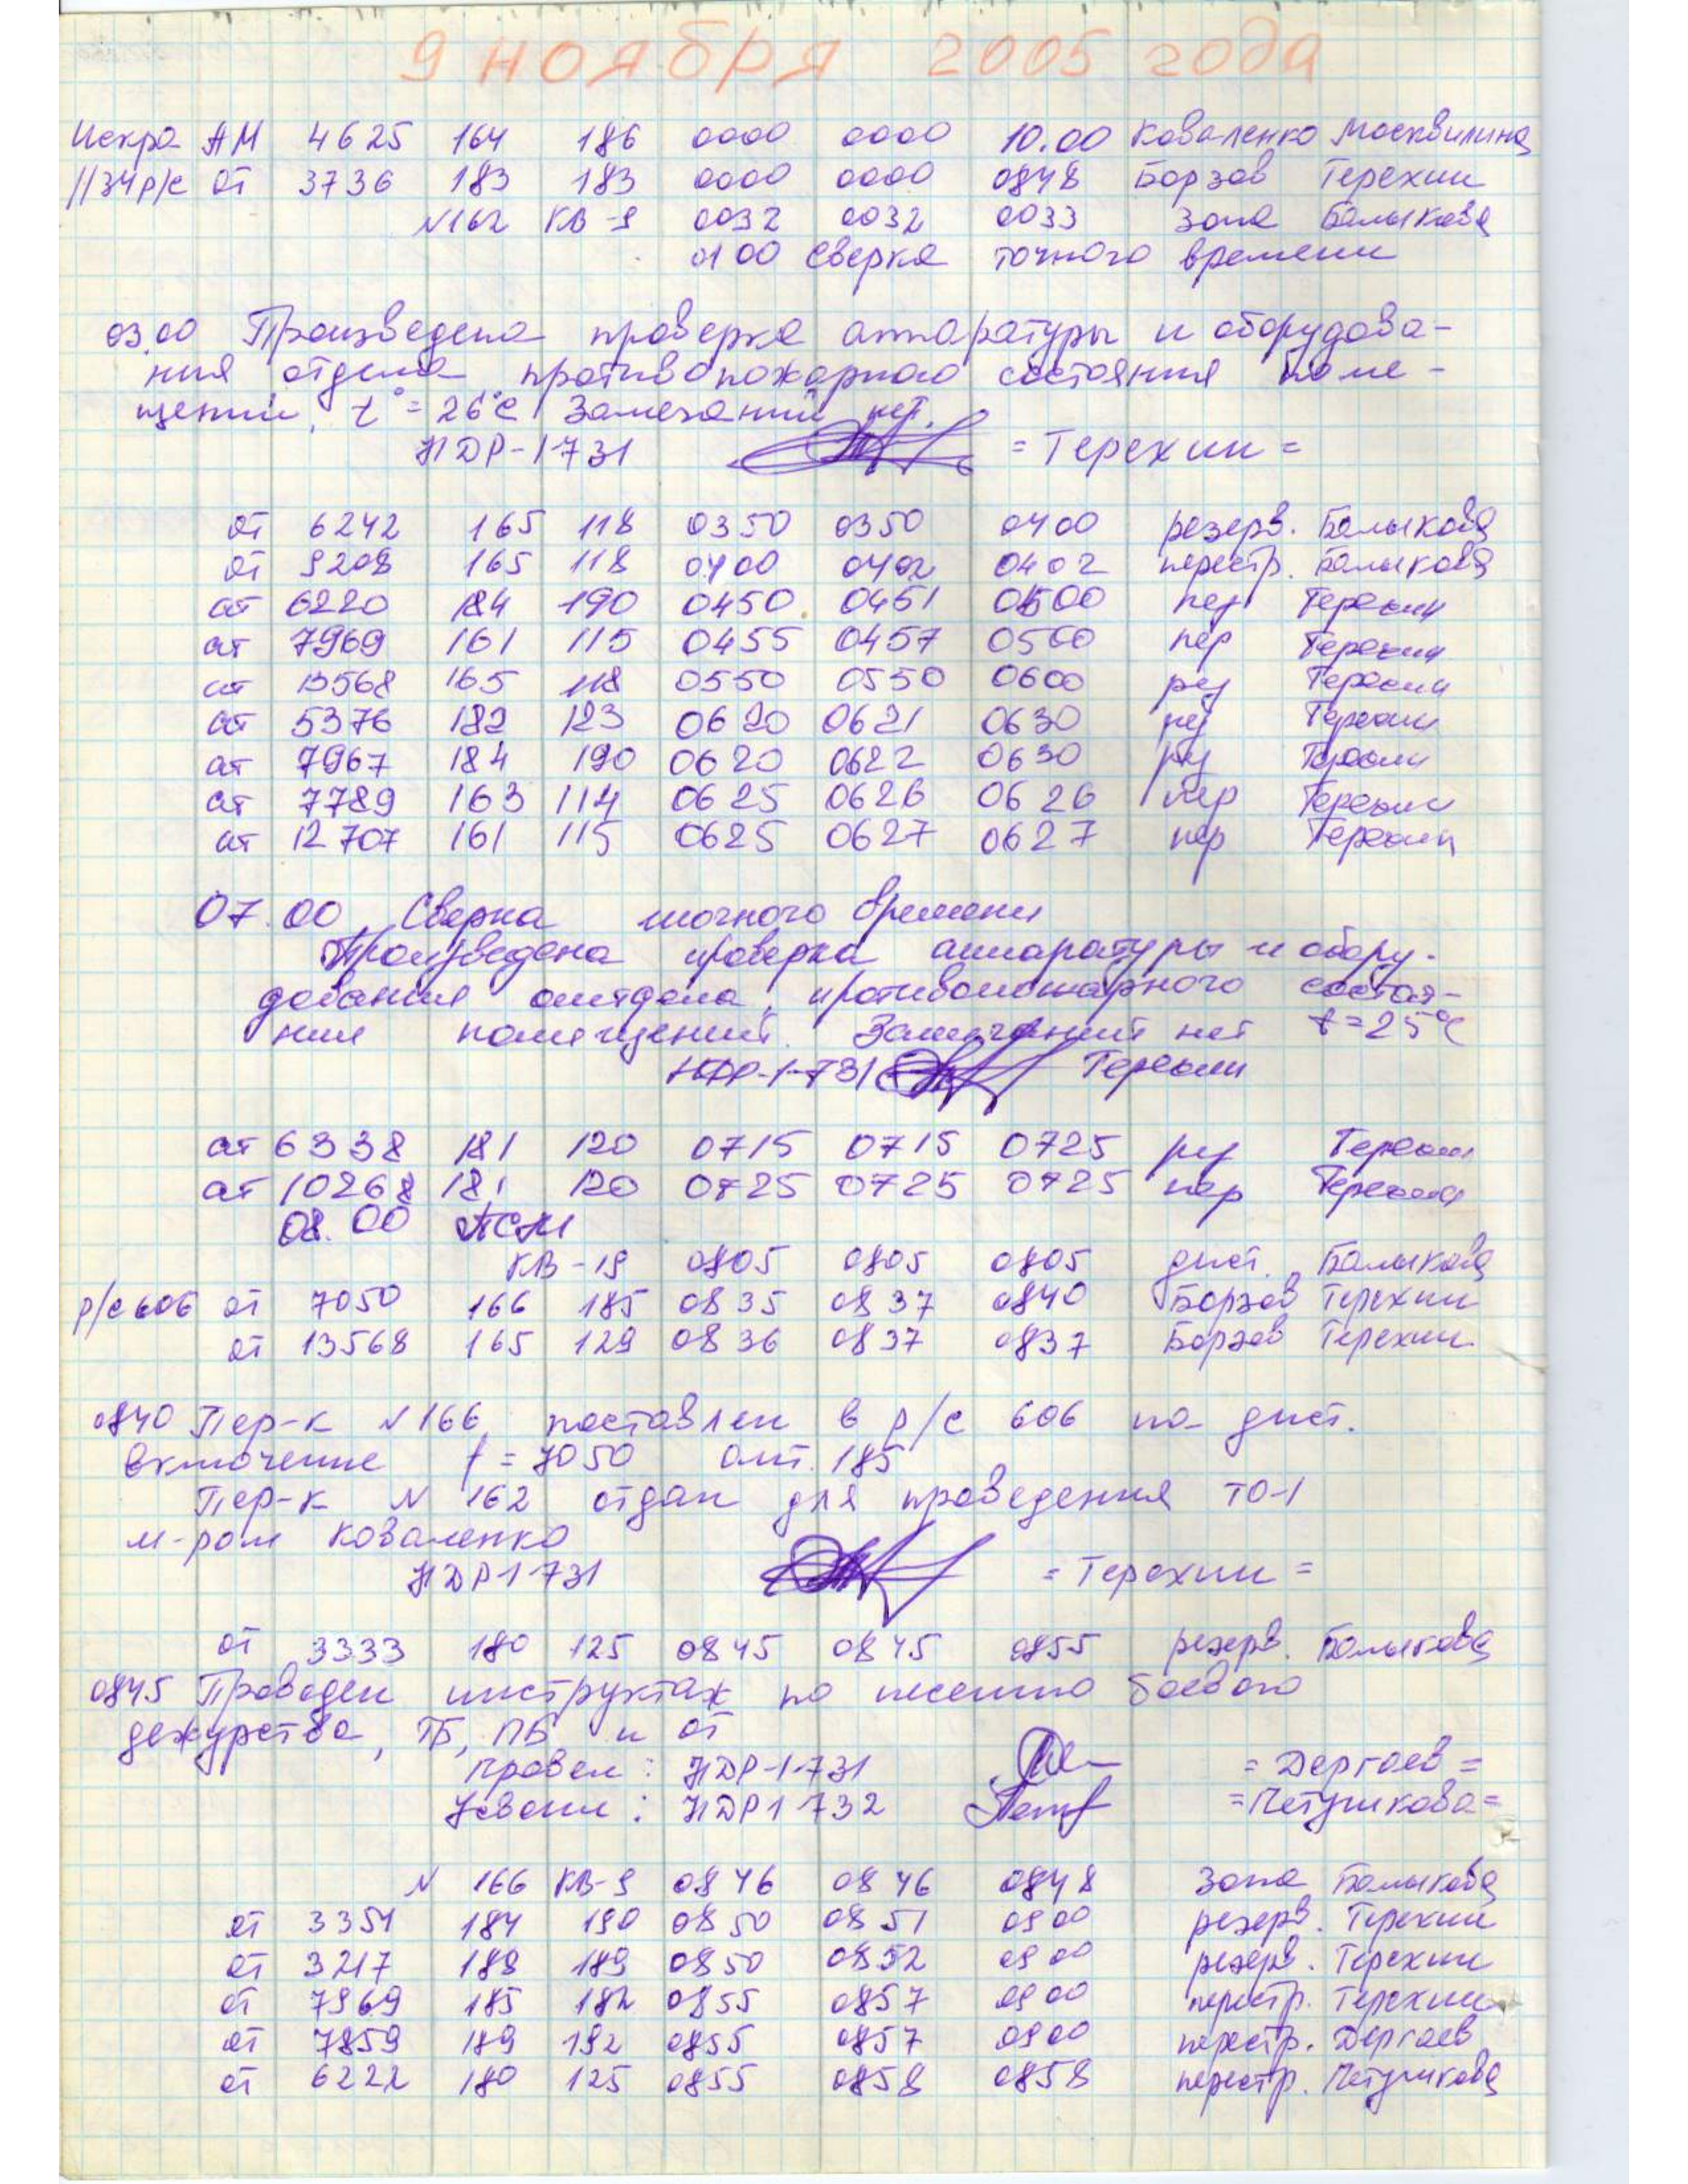 9 ноября 2005 года
Искра АМ 4625 164 186 0000 0000 10.00 Коваленко Москвилина
//34 р/с от 3736 183 183 0000 0000 0848 Борзов Терехин
N162 КВ-9 0032 0032 0033 зона Балыкова
0100 Сверка точного времени
03.00 Произведена проверка аппаратуры и оборудова-
ния отдела противопожарного состояния поме-
щений, t°=26°С Замечаний нет.
НДР-1-731 =Терехин=
от 6242 165 118 0350 0350 0400 резерв. Балыкова
от 9208 165 118 0400 0402 0402 перестр. Балыкова
от 6220 184 190 0450 0451 0500 рез Терехин
от 7969 161 115 0455 0457 0500 пер Терехин
от 13568 165 118 0550 0550 0600 рез Терехин
от 5376 182 123 0620 0621 0630 рез Терехин
от 7967 184 190 0620 0622 0630 рез Терехин
от 7789 163 114 0625 0626 0626 пер Терехин
от 12707 161 115 0625 0627 0627 пер Терехин
07.00 Сверка точного времени
Произведена проверка аппаратуры и обору-
дования отдела, противопожарного состоя-
ния помещений. Замечаний нет t=25°С
НДР-1-731 Терехин
от 6338 181 120 0715 0715 0725 рез Терехин
от 10268 181 120 0725 0725 0725 пер Терехин
08.00
КВ-19 0805 0805 0805 дист. Балыкова
р/с 606 от 7050 166 185 0835 0837 0840 Борзов Терехин
от 13568 165 129 0836 0837 0837 Борзов Терехин
0840 Пер-к N166 поставлен в р/с 606 на дист.
включение f=7050 ант. 185
Пер-к N 162 отдан для проведения ТО-1
м-ром Коваленко
НДР1 731 =Терехин=
от 3333 180 125 0845 0845 0855 резерв. Балыкова
0845 Проведен инструктаж по несению боевого
дежурства, ТБ, ПБ и от
провел: НДР-1-731 =Дергаев=
Усвоил: НДР1 732 =Петушкова=
N 166 КВ-9 0846 0846 0848 зона Балыкова
от 3351 184 190 0850 0851 0900 резерв. Терехин
от 3217 188 189 0850 0852 0900 резерв. Терехин
от 7969 185 182 0855 0857 0900 перестр. Терехин
от 7859 189 192 0855 0857 0900 перестр. Дергаев
от 6222 180 125 0855 0858 0858 перестр. Петушкова